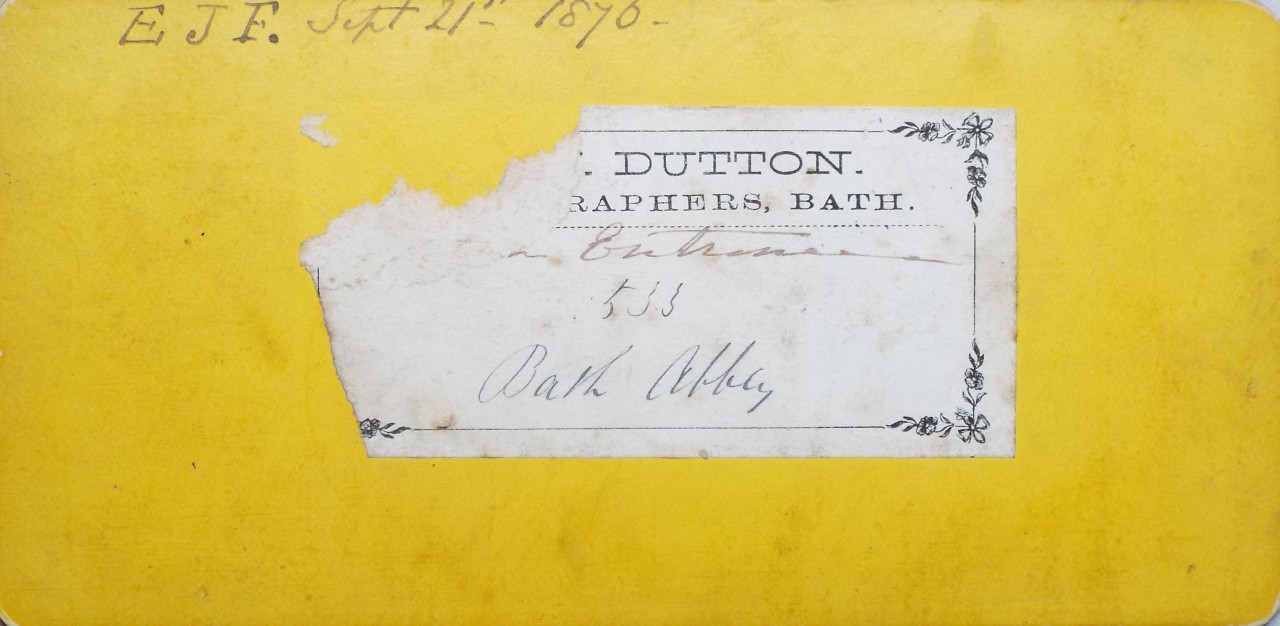 E J F. Sept 21st 1876-
. DUTTON.
RAPHERS, BATH.
Entrance
533
Bath Abbey